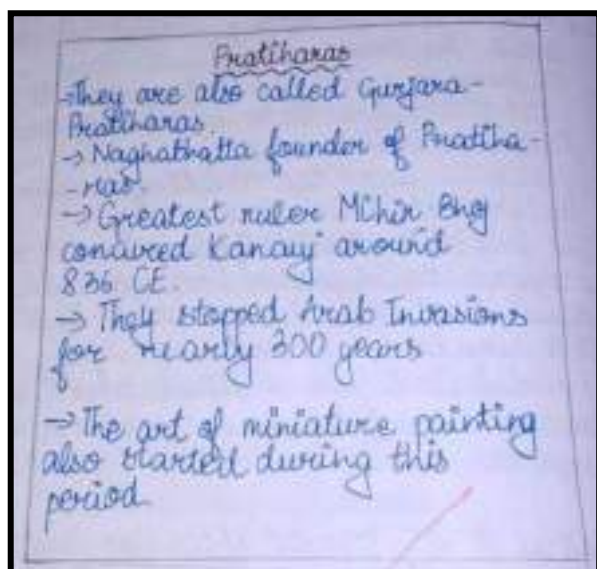 Pratiharas
→They are also called Gurjara-
Pratiharas.
→ Naghabhatta founder of Pratiha-
-ras.
→ Greatest ruler Mihir Bhoj
conqured Kanauj around
836 CE.
→ They stopped Arab Invasions
for nearly 300 years
→ The art of miniature painting
also started during this
period